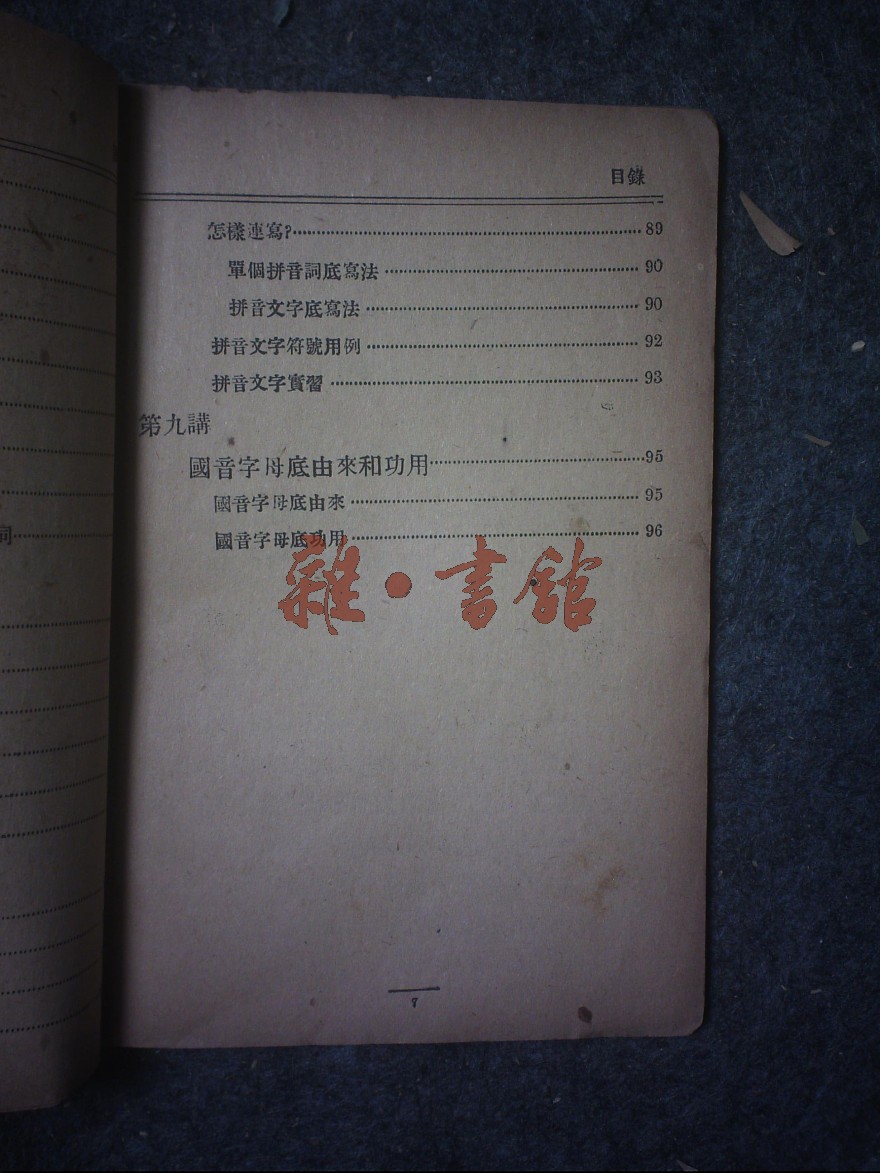 目錄
怎樣連寫?……89
單個拼音詞底寫法……90
拼音文字底寫法……90
拼音文字符號用例……92
拼音文字實習……93
第九講
國音字母底由來和功用……95
國音字母底由來……95
國音字母底功用……96
雜·書館
7
詞